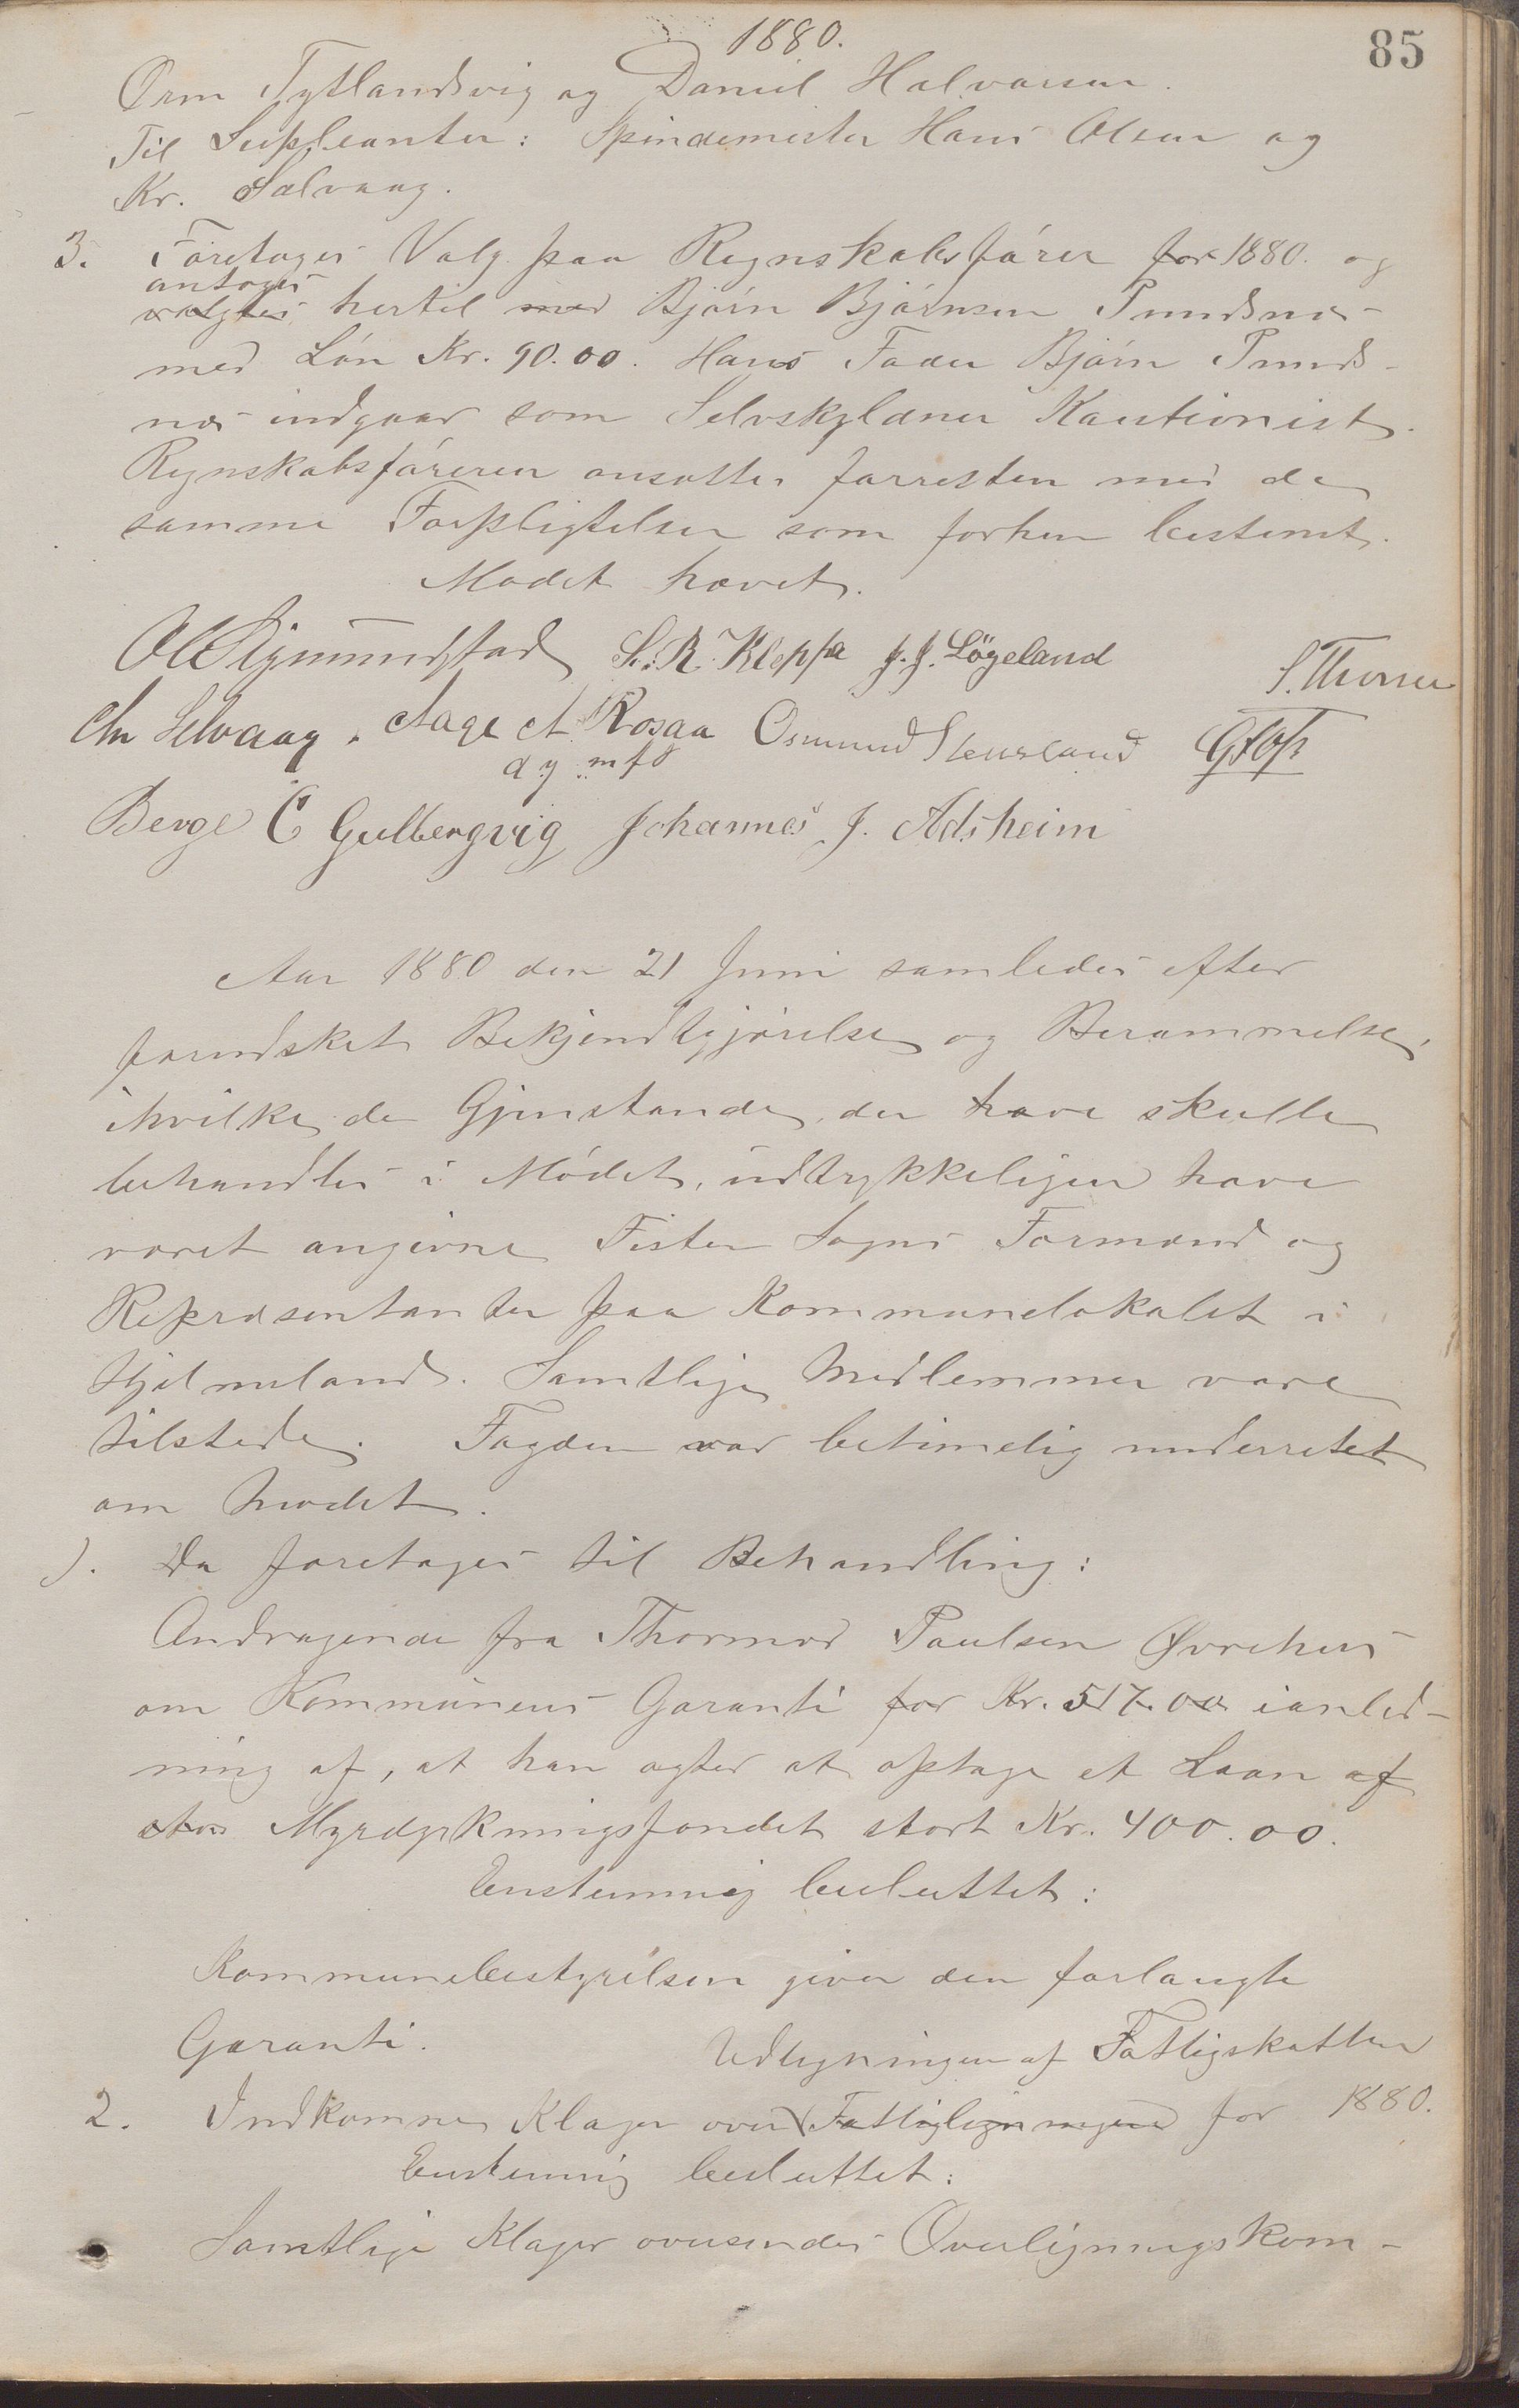 1880.
85
Orm Tytlandsvig og Daniel Halvorsen.
Til Supleanter: Spindemester Hans Olsen og
Kr. Sælvaag.
3. Foretoges Valg paa Regnskabsfører for 1880. og
antoges
valgtes hertil med Bjørn Bjørnsen Pundsnes
med Løn Kr. 90.00. Hans Fader Bjørn Punds-
nes indgaar som Selvskyldner Kautionist.
Regnskabsføreren ansættes forresten med de
samme Forpligtelser som forhen bestemt.
Mødet hævet.
Ol Sigmundstad S. R. Kleppa J. J. Løgeland
S. Thorsen
Chr Selvaag. Aage A Rosaa Osmund Stensland
d y m f o
Berge C Gulbergvig Johannes J. Adsheim
Aar 1880 den 21 Juni samledes efter
forudsket Bekjendtgjørelse og Berammelse,
ihvilke de Gjenstande, der have skulle
behandles i Mødet, udtrykkeligen have
været angivne Fister Sogns Formænd og
Repræsentanter paa Kommunelokalet i
Hjelmeland. Samtlige Medlemmer vare
tilstede. Fogden var betimelig underrettet
om Mødet.
1). Da foretoges til Behandling:
Andragende fra Thormod Paulsen Øvrehus
om Kommunens Garanti for Kr. 517.00 ianled-
ning af, at han agter at optage et Laan af
Myrdyrkningsfondet stort Kr. 400.00.
Enstemmig besluttet:
Kommunebestyrelsen giver den forlangte
Garanti.
Udligningen af Fattigskatten
2. Indkomne Klager over Fattigligningen for 1880.
Enstemmig besluttet:
Samtlige Klager oversendes Overligningskom-